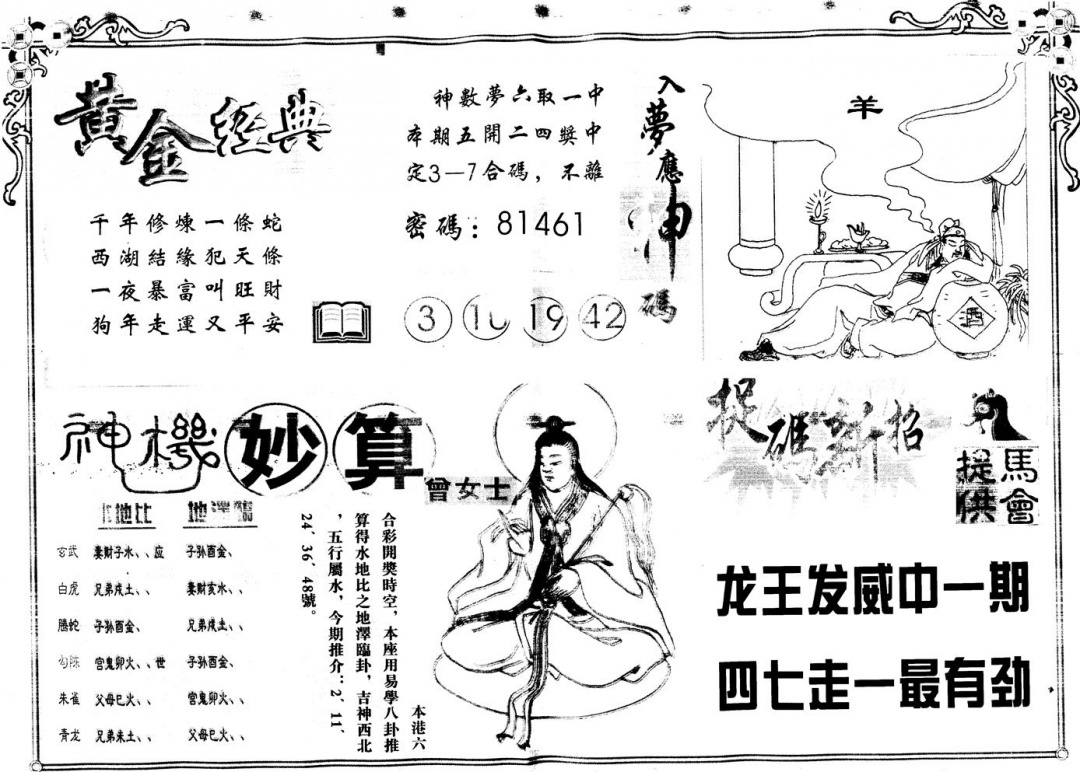 黄金經典
千年修煉一條蛇
西湖結緣犯天條
一夜暴富叫旺財
狗年走運又平安
神數夢六取一中
本期五開二四獎中
定3—7合碼，不離
密碼：81461
3 10 19 42
入夢應神碼
羊
酉
神機妙算
曾女士
水地比 地澤臨
玄武 妻财子水、、应 子孙酉金、
白虎 兄弟戌土、、 妻财亥水、、
騰蛇 子孙酉金、 兄弟戌土、、
勾陈 宫鬼卯火、、世 子孙酉金、
朱雀 父母巳火、、 宫鬼卯火、、
青龙 兄弟未土、、 父母巳火、、
本港六
合彩開獎時空，本座用易學八卦推
算得水地比之地澤臨卦，吉神西北
，五行屬水，今期推介：2、11、
24、36、48號。
捉碼新招
馬會提供
龙王发威中一期
四七走一最有劲